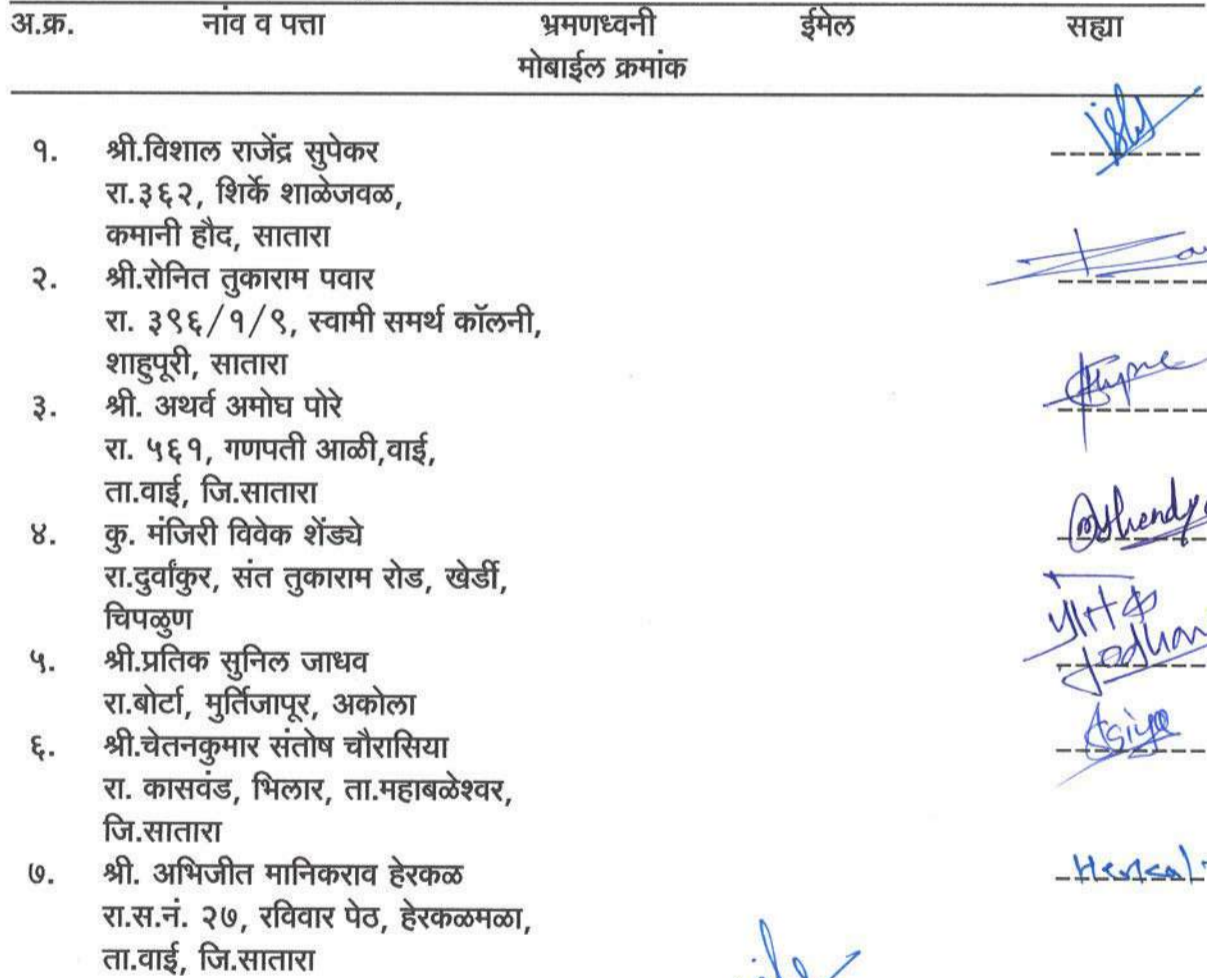 अ.क्र. नांव व पत्ता भ्रमणध्वनी ईमेल सह्या
मोबाईल क्रमांक
१. श्री.विशाल राजेंद्र सुपेकर
रा.३६२, शिर्के शाळेजवळ,
कमानी हौद, सातारा
२. श्री.रोनित तुकाराम पवार
रा. ३९६/१/९, स्वामी समर्थ कॉलनी,
शाहुपूरी, सातारा
३. श्री. अथर्व अमोघ पोरे
रा. ५६१, गणपती आळी,वाई,
ता.वाई, जि.सातारा
४. कु. मंजिरी विवेक शेंड्ये
रा.दुर्वांकुर, संत तुकाराम रोड, खेर्डी,
चिपळुण
५. श्री.प्रतिक सुनिल जाधव
रा.बोर्टा, मुर्तिजापूर, अकोला
६. श्री.चेतनकुमार संतोष चौरासिया
रा. कासवंड, भिलार, ता.महाबळेश्वर,
जि.सातारा
७. श्री. अभिजीत मानिकराव हेरकळ
रा.स.नं. २७, रविवार पेठ, हेरकळमळा,
ता.वाई, जि.सातारा